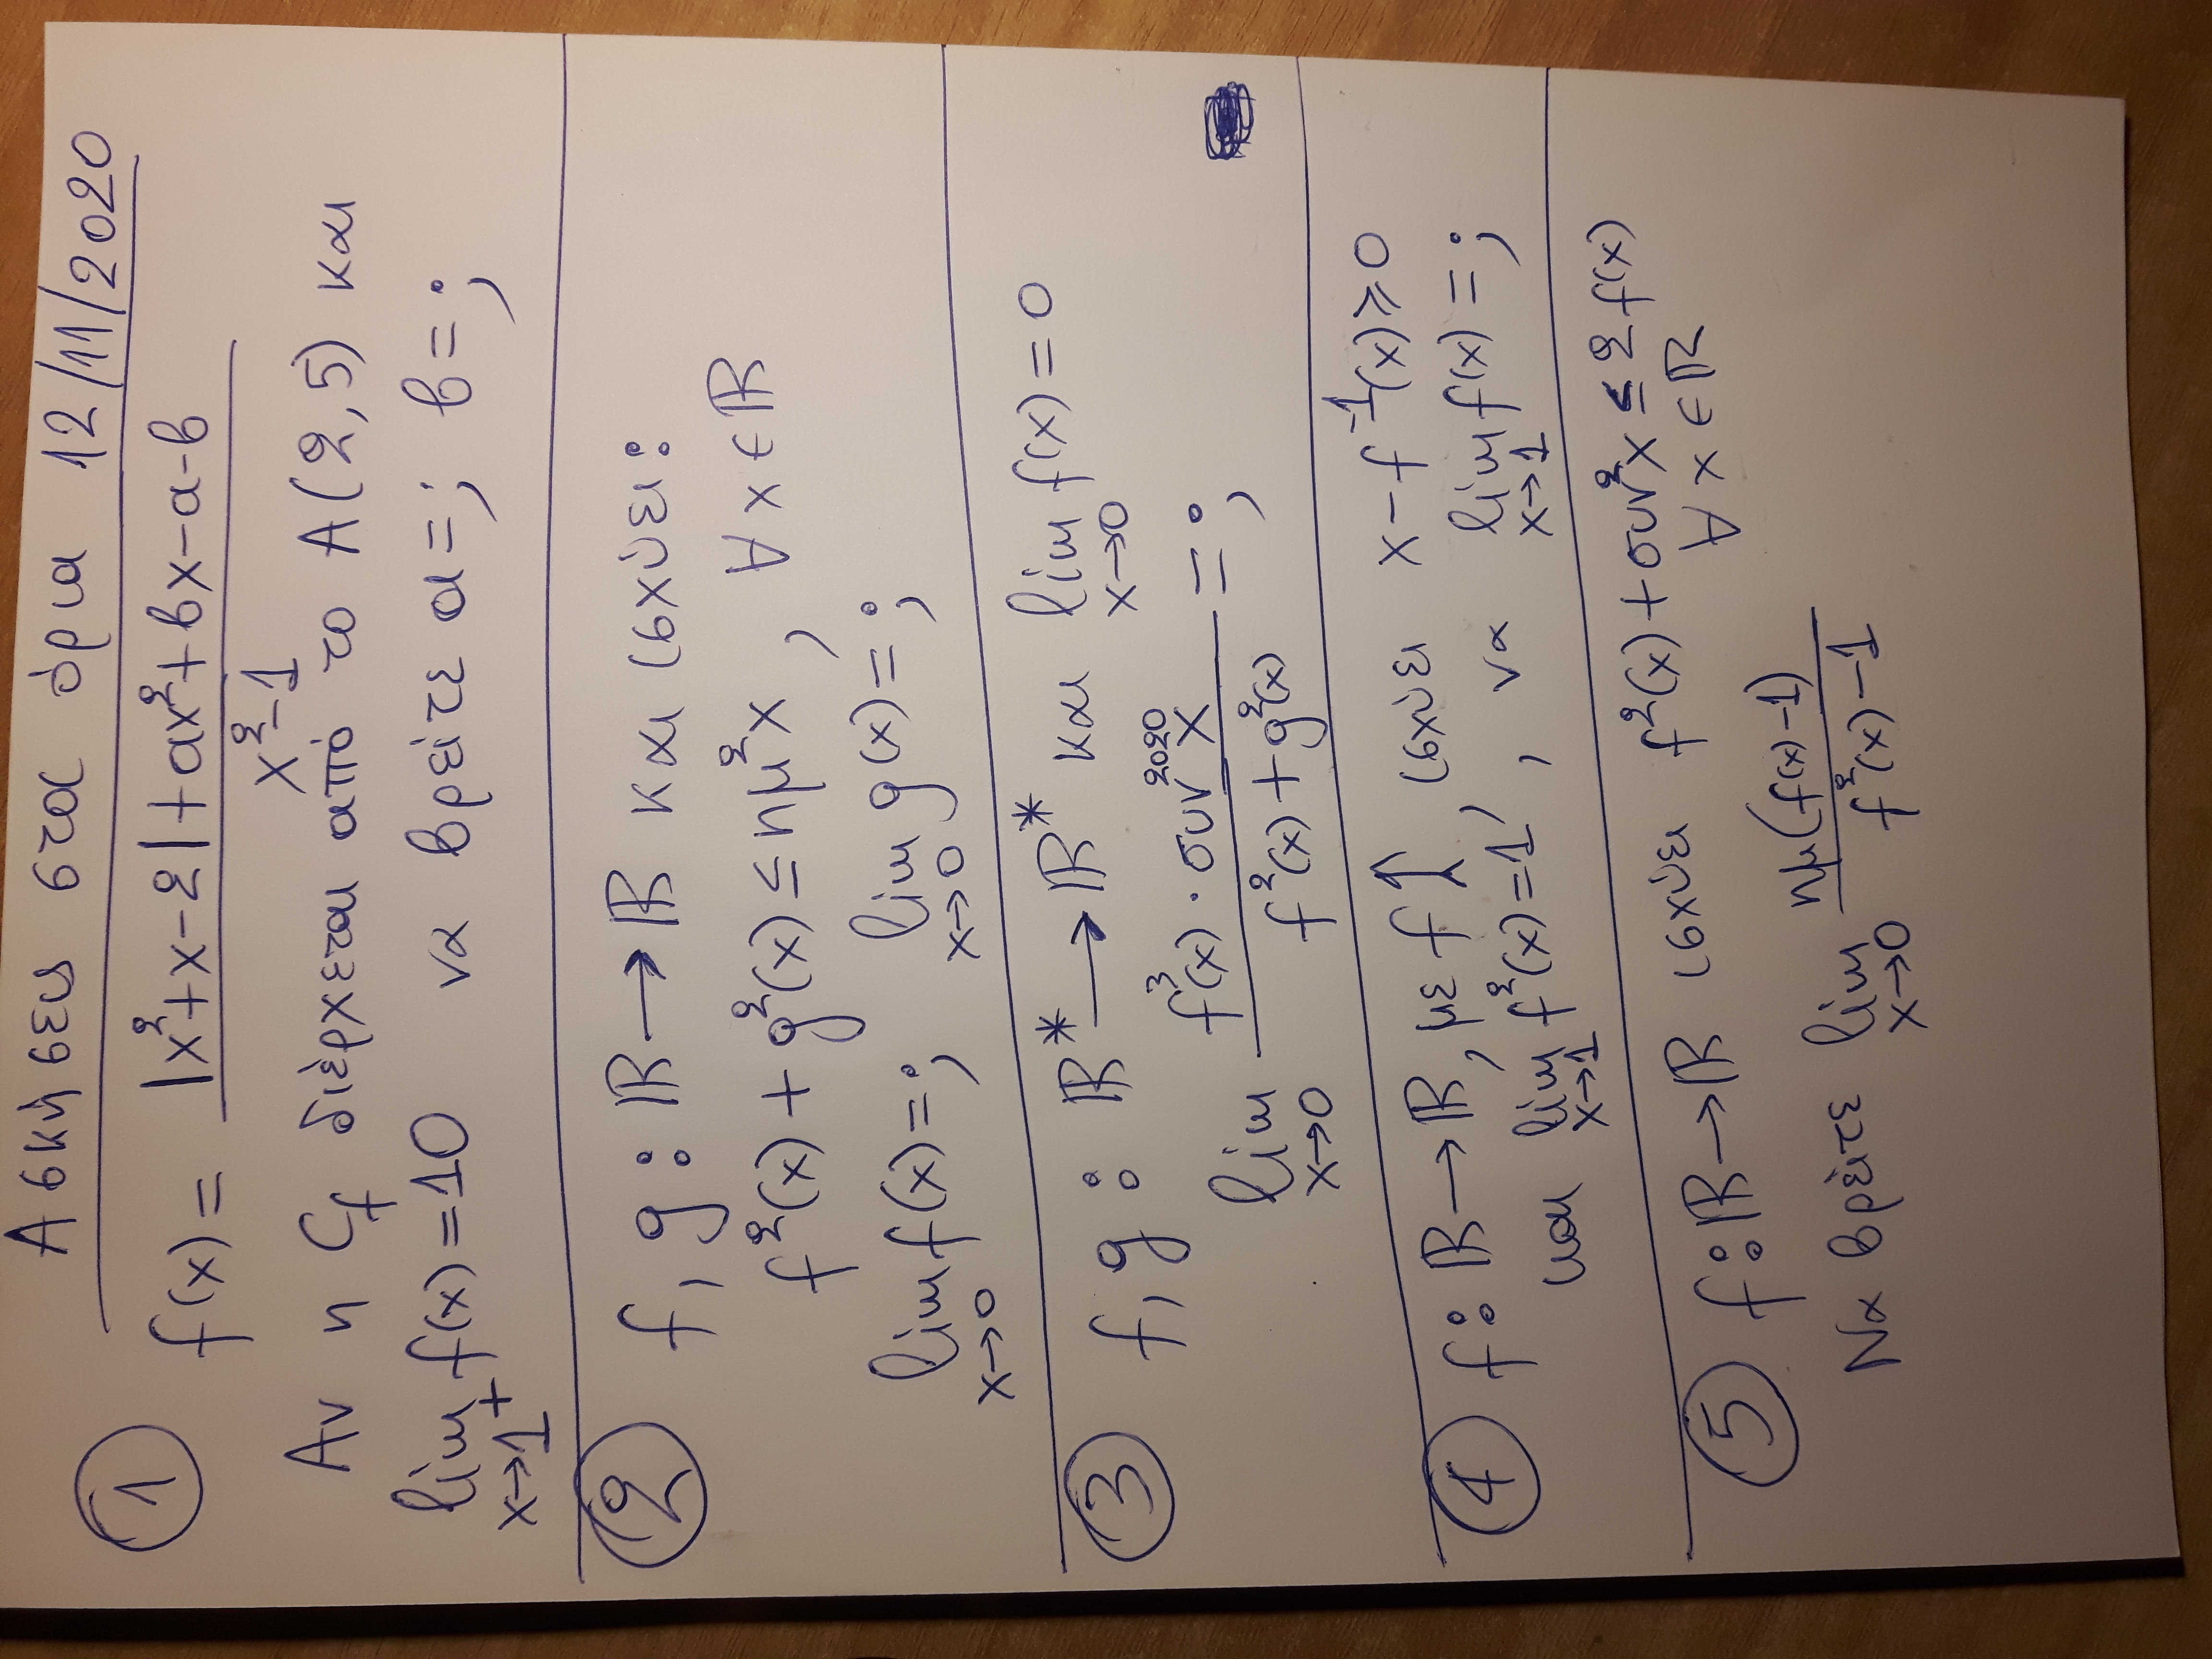 Ασκήσεις στα όρια 12/11/2020
① f(x) = (|x²+x-2|+αx²+βx-α-β)/(x²-1)
Αν η Cf διέρχεται από το Α(2,5) και
lim x→1⁺ f(x)=10 να βρείτε α=; β=;
② f,g: ℝ→ℝ και ισχύει:
f²(x)+g²(x)≤ημ²x, ∀x∈ℝ
lim x→0 f(x)=; lim x→0 g(x)=;
③ f,g: ℝ*→ℝ* και lim x→0 f(x)=0
lim x→0 (f³(x)·συν²⁰²⁰x)/(f²(x)+g²(x)) =;
④ f:ℝ→ℝ, με f↑ ισχύει x-f⁻¹(x)≥0
και lim x→1 f²(x)=1, να lim x→1 f(x)=;
⑤ f:ℝ→ℝ ισχύει f²(x)+συν²x≤2f(x)
∀x∈ℝ
Να βρείτε lim x→0 ημ(f(x)-1)/(f²(x)-1)